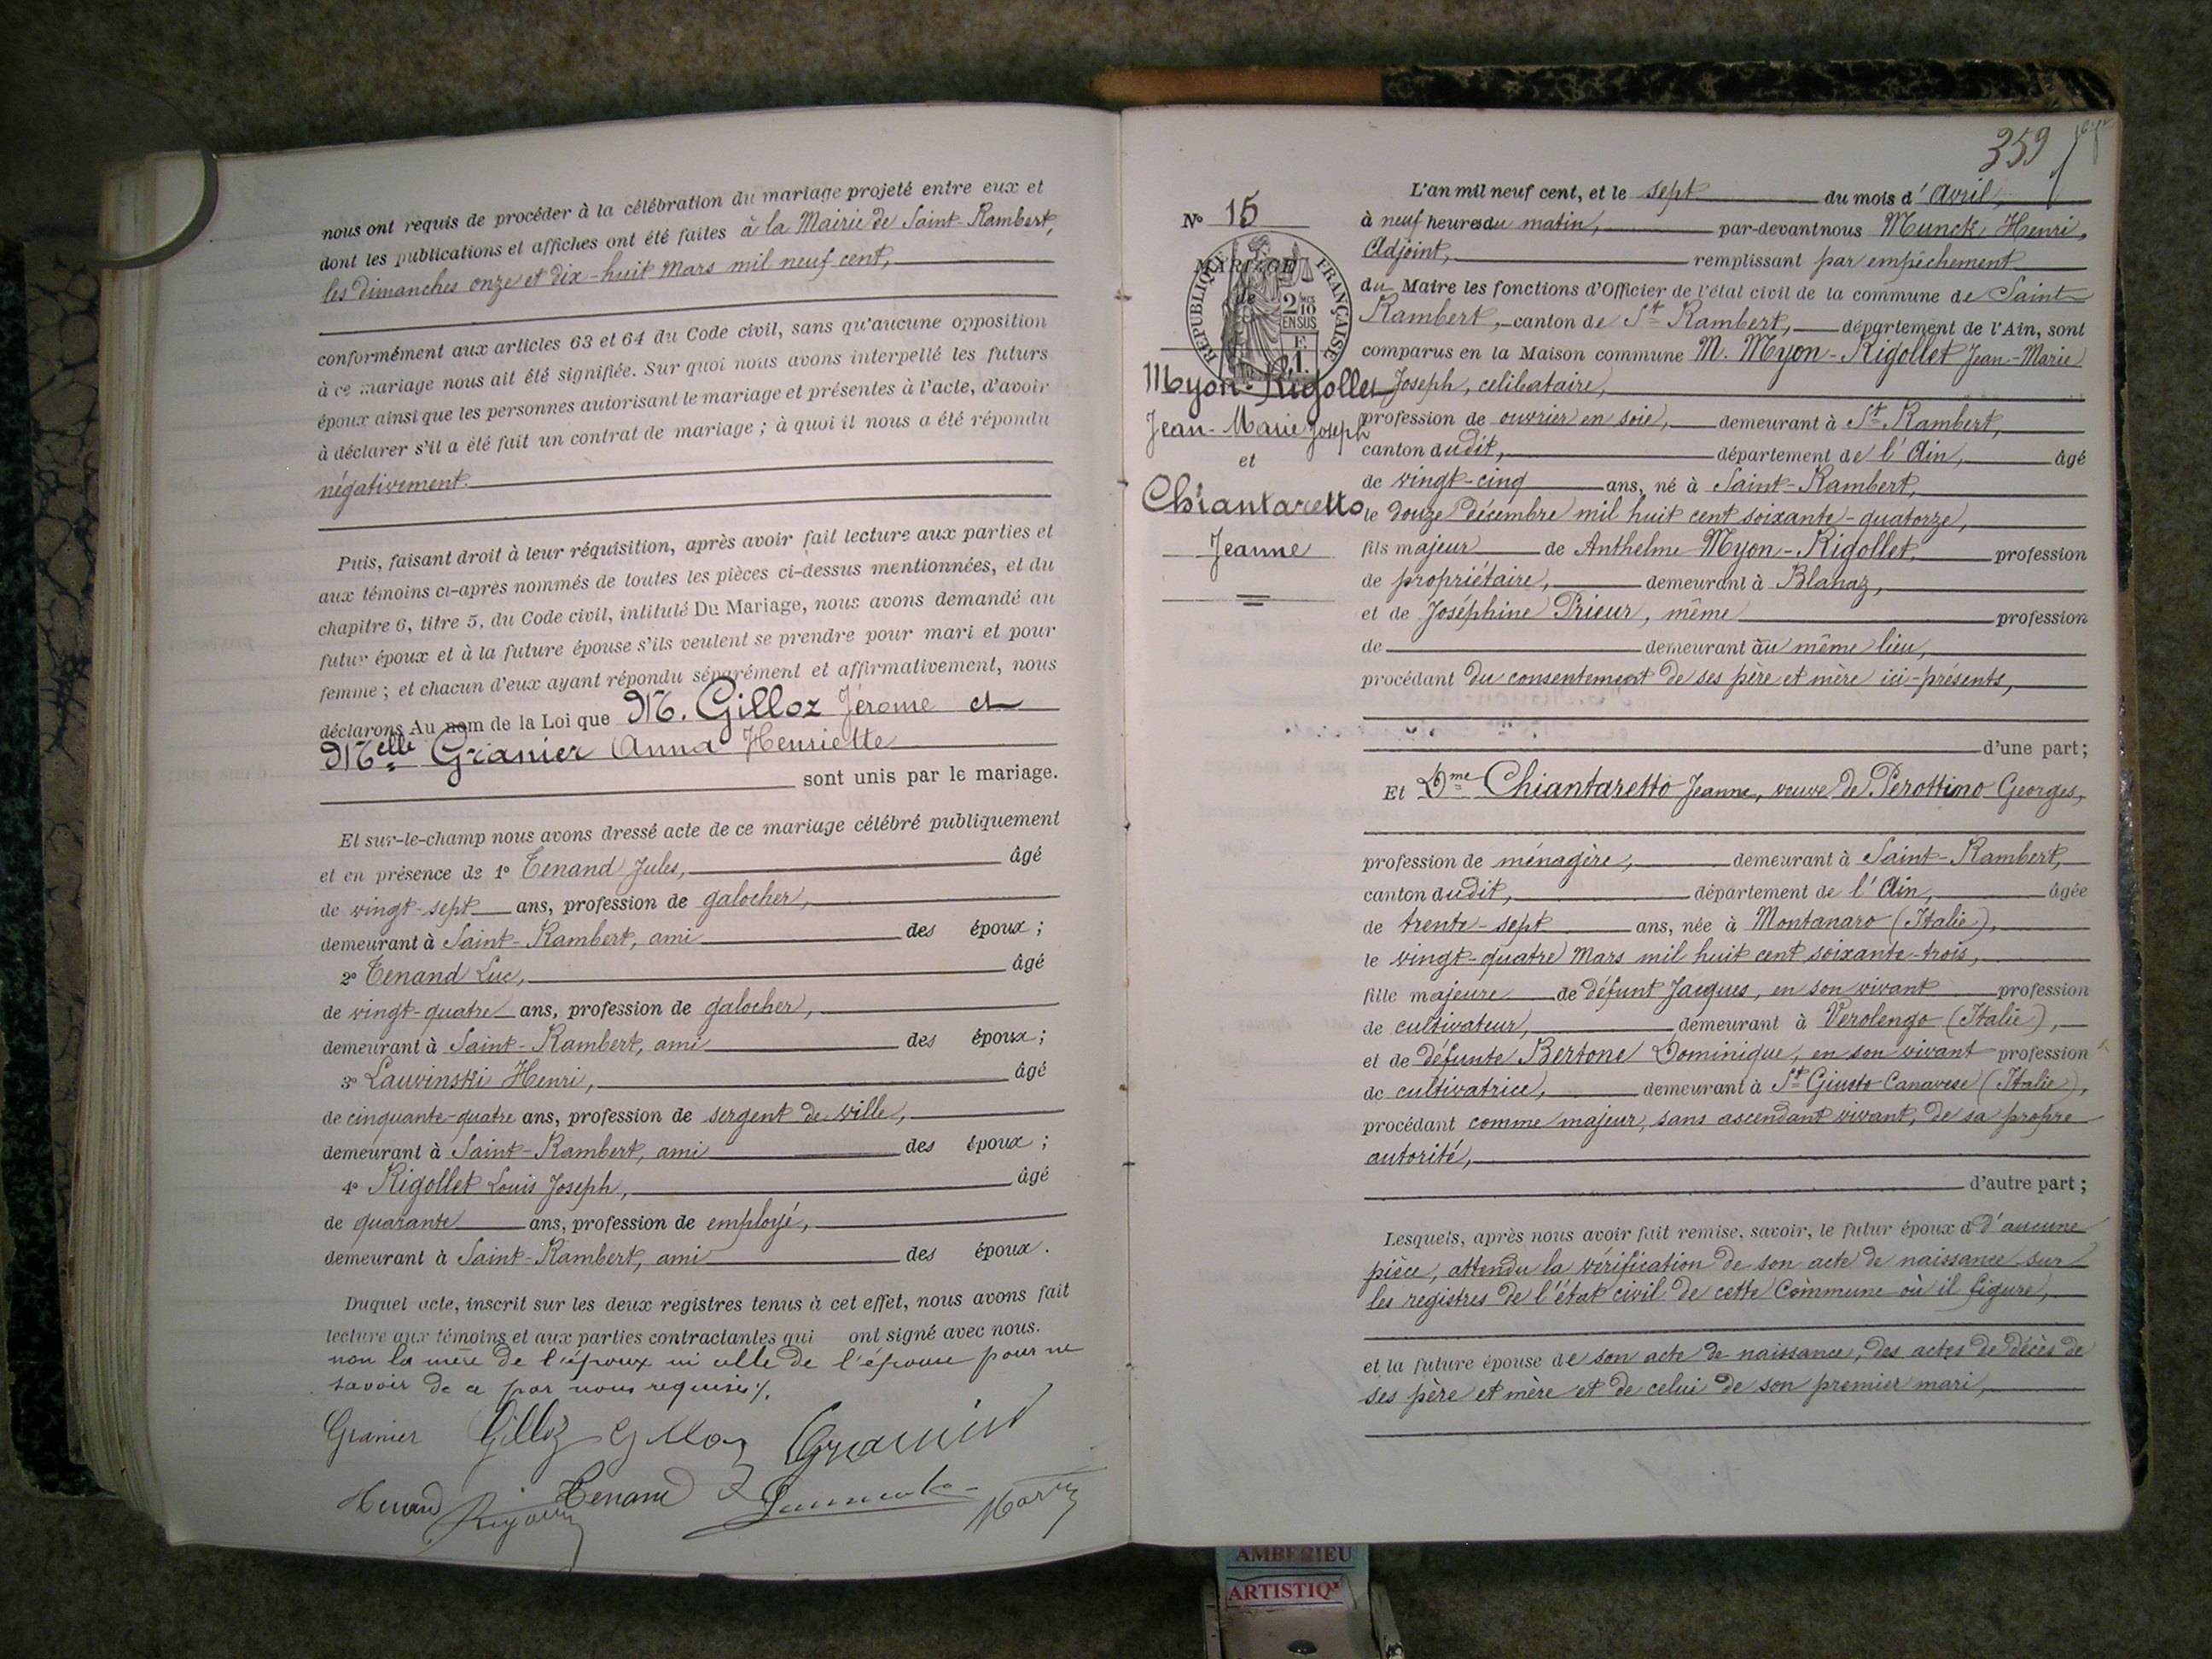 nous ont requis de procéder à la célébration du mariage projeté entre eux et
dont les publications et affiches ont été faites à la Mairie de Saint-Rambert,
les dimanches onze et dix-huit Mars mil neuf cent,
conformément aux articles 63 et 64 du Code civil, sans qu'aucune opposition
à ce mariage nous ait été signifiée. Sur quoi nous avons interpellé les futurs
époux ainsi que les personnes autorisant le mariage et présentes à l'acte, d'avoir
à déclarer s'il a été fait un contrat de mariage ; à quoi il nous a été répondu
négativement.
Puis, faisant droit à leur réquisition, après avoir fait lecture aux parties et
aux témoins ci-après nommés de toutes les pièces ci-dessus mentionnées, et du
chapitre 6, titre 5, du Code civil, intitulé Du Mariage, nous avons demandé au
futur époux et à la future épouse s'ils veulent se prendre pour mari et pour
femme ; et chacun d'eux ayant répondu séparément et affirmativement, nous
déclarons Au nom de la Loi que M. Gilloz Jérome et
Melle Granier Anna Henriette
sont unis par le mariage.
Et sur-le-champ nous avons dressé acte de ce mariage célébré publiquement
et en présence de 1° Tenand Jules, âgé
de vingt-sept ans, profession de galocher,
demeurant à Saint-Rambert, ami des époux ;
2° Tenand Luc, âgé
de vingt-quatre ans, profession de galocher,
demeurant à Saint-Rambert, ami des époux ;
3° Lauvinski Henri, âgé
de cinquante-quatre ans, profession de sergent de ville,
demeurant à Saint-Rambert, ami des époux ;
4° Rigollet Louis Joseph, âgé
de quarante ans, profession de employé,
demeurant à Saint-Rambert, ami des époux.
Duquel acte, inscrit sur les deux registres tenus à cet effet, nous avons fait
lecture aux témoins et aux parties contractantes qui ont signé avec nous.
non la mère de l'époux ni celle de l'épouse pour ne
savoir de ce par nous requises %.
Granier Gilloz Gilloz Granier
Tenand
359
N° 15
MARIAGE
de
RÉPUBLIQUE FRANÇAISE
2/10
EN SUS
Myon-Rigollet
Jean-Marie Joseph
et
Chiantaretto
Jeanne
L'an mil neuf cent, et le sept du mois d'Avril,
à neuf heures du matin, par-devant nous Munck Henri,
Adjoint, remplissant par empêchement
du Maire les fonctions d'Officier de l'état civil de la commune de Saint
Rambert, canton de St Rambert, département de l'Ain, sont
comparus en la Maison commune M. Myon-Rigollet Jean-Marie
Joseph, celibataire,
profession de ouvrier en soie, demeurant à St Rambert,
canton dudit, département de l'Ain, âgé
de vingt-cinq ans, né à Saint-Rambert,
le douze Décembre mil huit cent soixante-quatorze,
fils majeur de Anthelme Myon-Rigollet, profession
de propriétaire, demeurant à Blanaz,
et de Joséphine Prieur, même profession
de demeurant au même lieu,
procédant du consentement de ses père et mère ici-présents,
d'une part ;
Et Dme Chiantaretto Jeanne, veuve de Perottino Georges,
profession de ménagère, demeurant à Saint-Rambert,
canton dudit, département de l'Ain, âgée
de trente-sept ans, née à Montanaro (Italie),
le vingt-quatre Mars mil huit cent soixante-trois,
fille majeure de défunt Jacques, en son vivant profession
de cultivateur, demeurant à Verolengo (Italie),
et de défunte Bertone Dominique, en son vivant profession
de cultivatrice, demeurant à St Giusto Canavese (Italie),
procédant comme majeur, sans ascendant vivant, de sa propre
autorité,
d'autre part ;
Lesquels, après nous avoir fait remise, savoir, le futur époux d d'aucune
pièce, attendu la vérification de son acte de naissance sur
les registres de l'état civil de cette Commune où il figure,
et la future épouse de son acte de naissance, des actes de décès de
ses père et mère et de celui de son premier mari,
AMBERIEU
ARTISTIQ